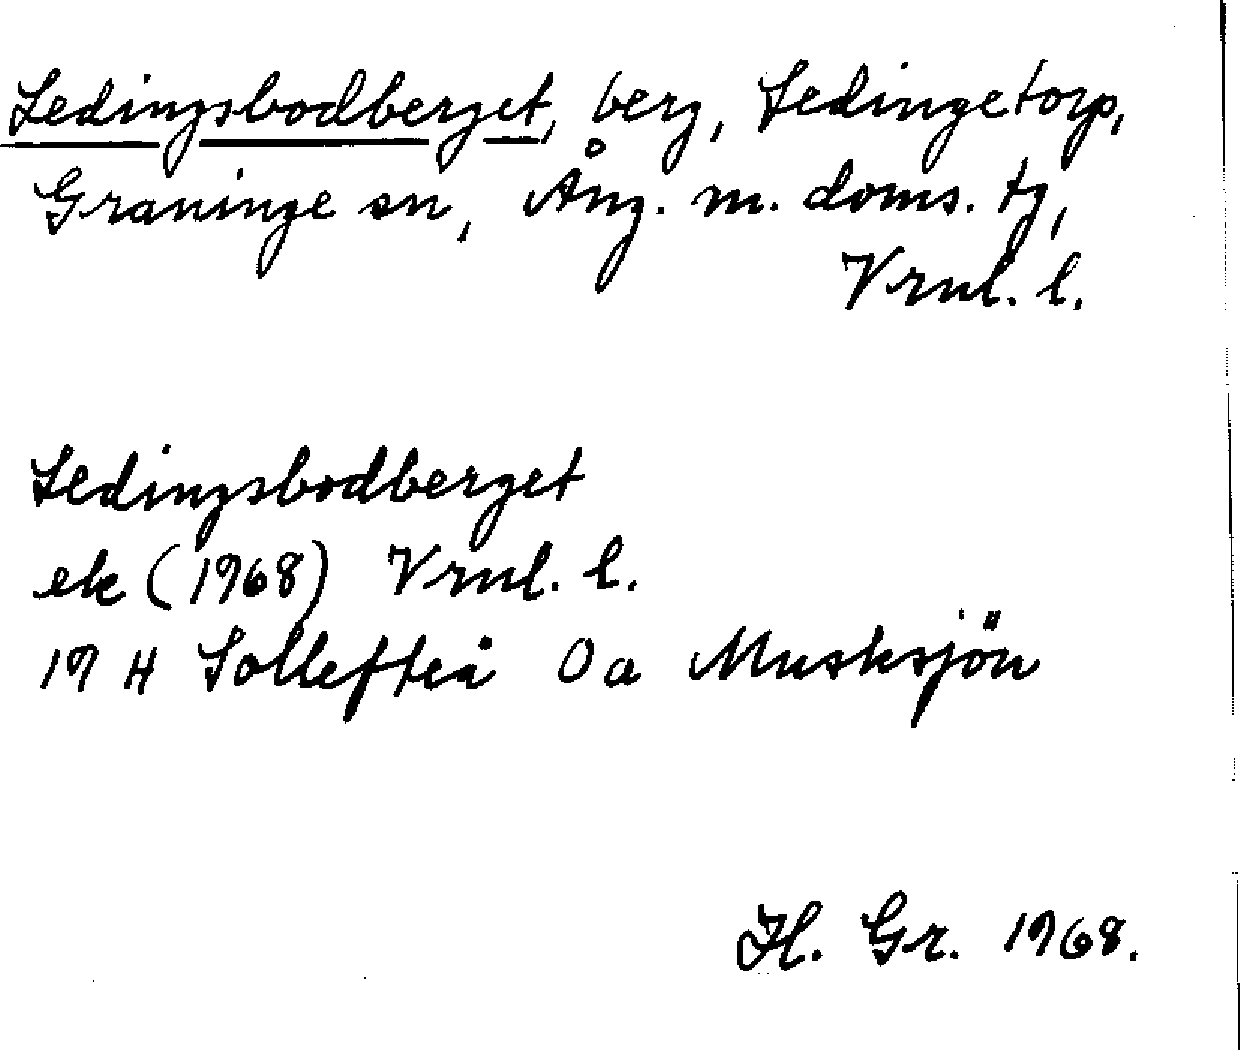 Ledingsbodberget, berg, Ledingetorp,
Graninge sn, Ång. m. doms. tg,
Vrnl. l.
Ledingsbodberget
ek (1968) Vrnl. l.
19 H Sollefteå 0 a Musksjön
H. Gr. 1968.